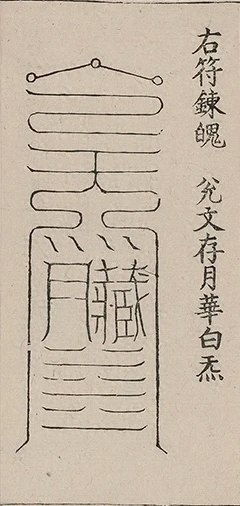 右符鍊魄　兊文存月華白炁